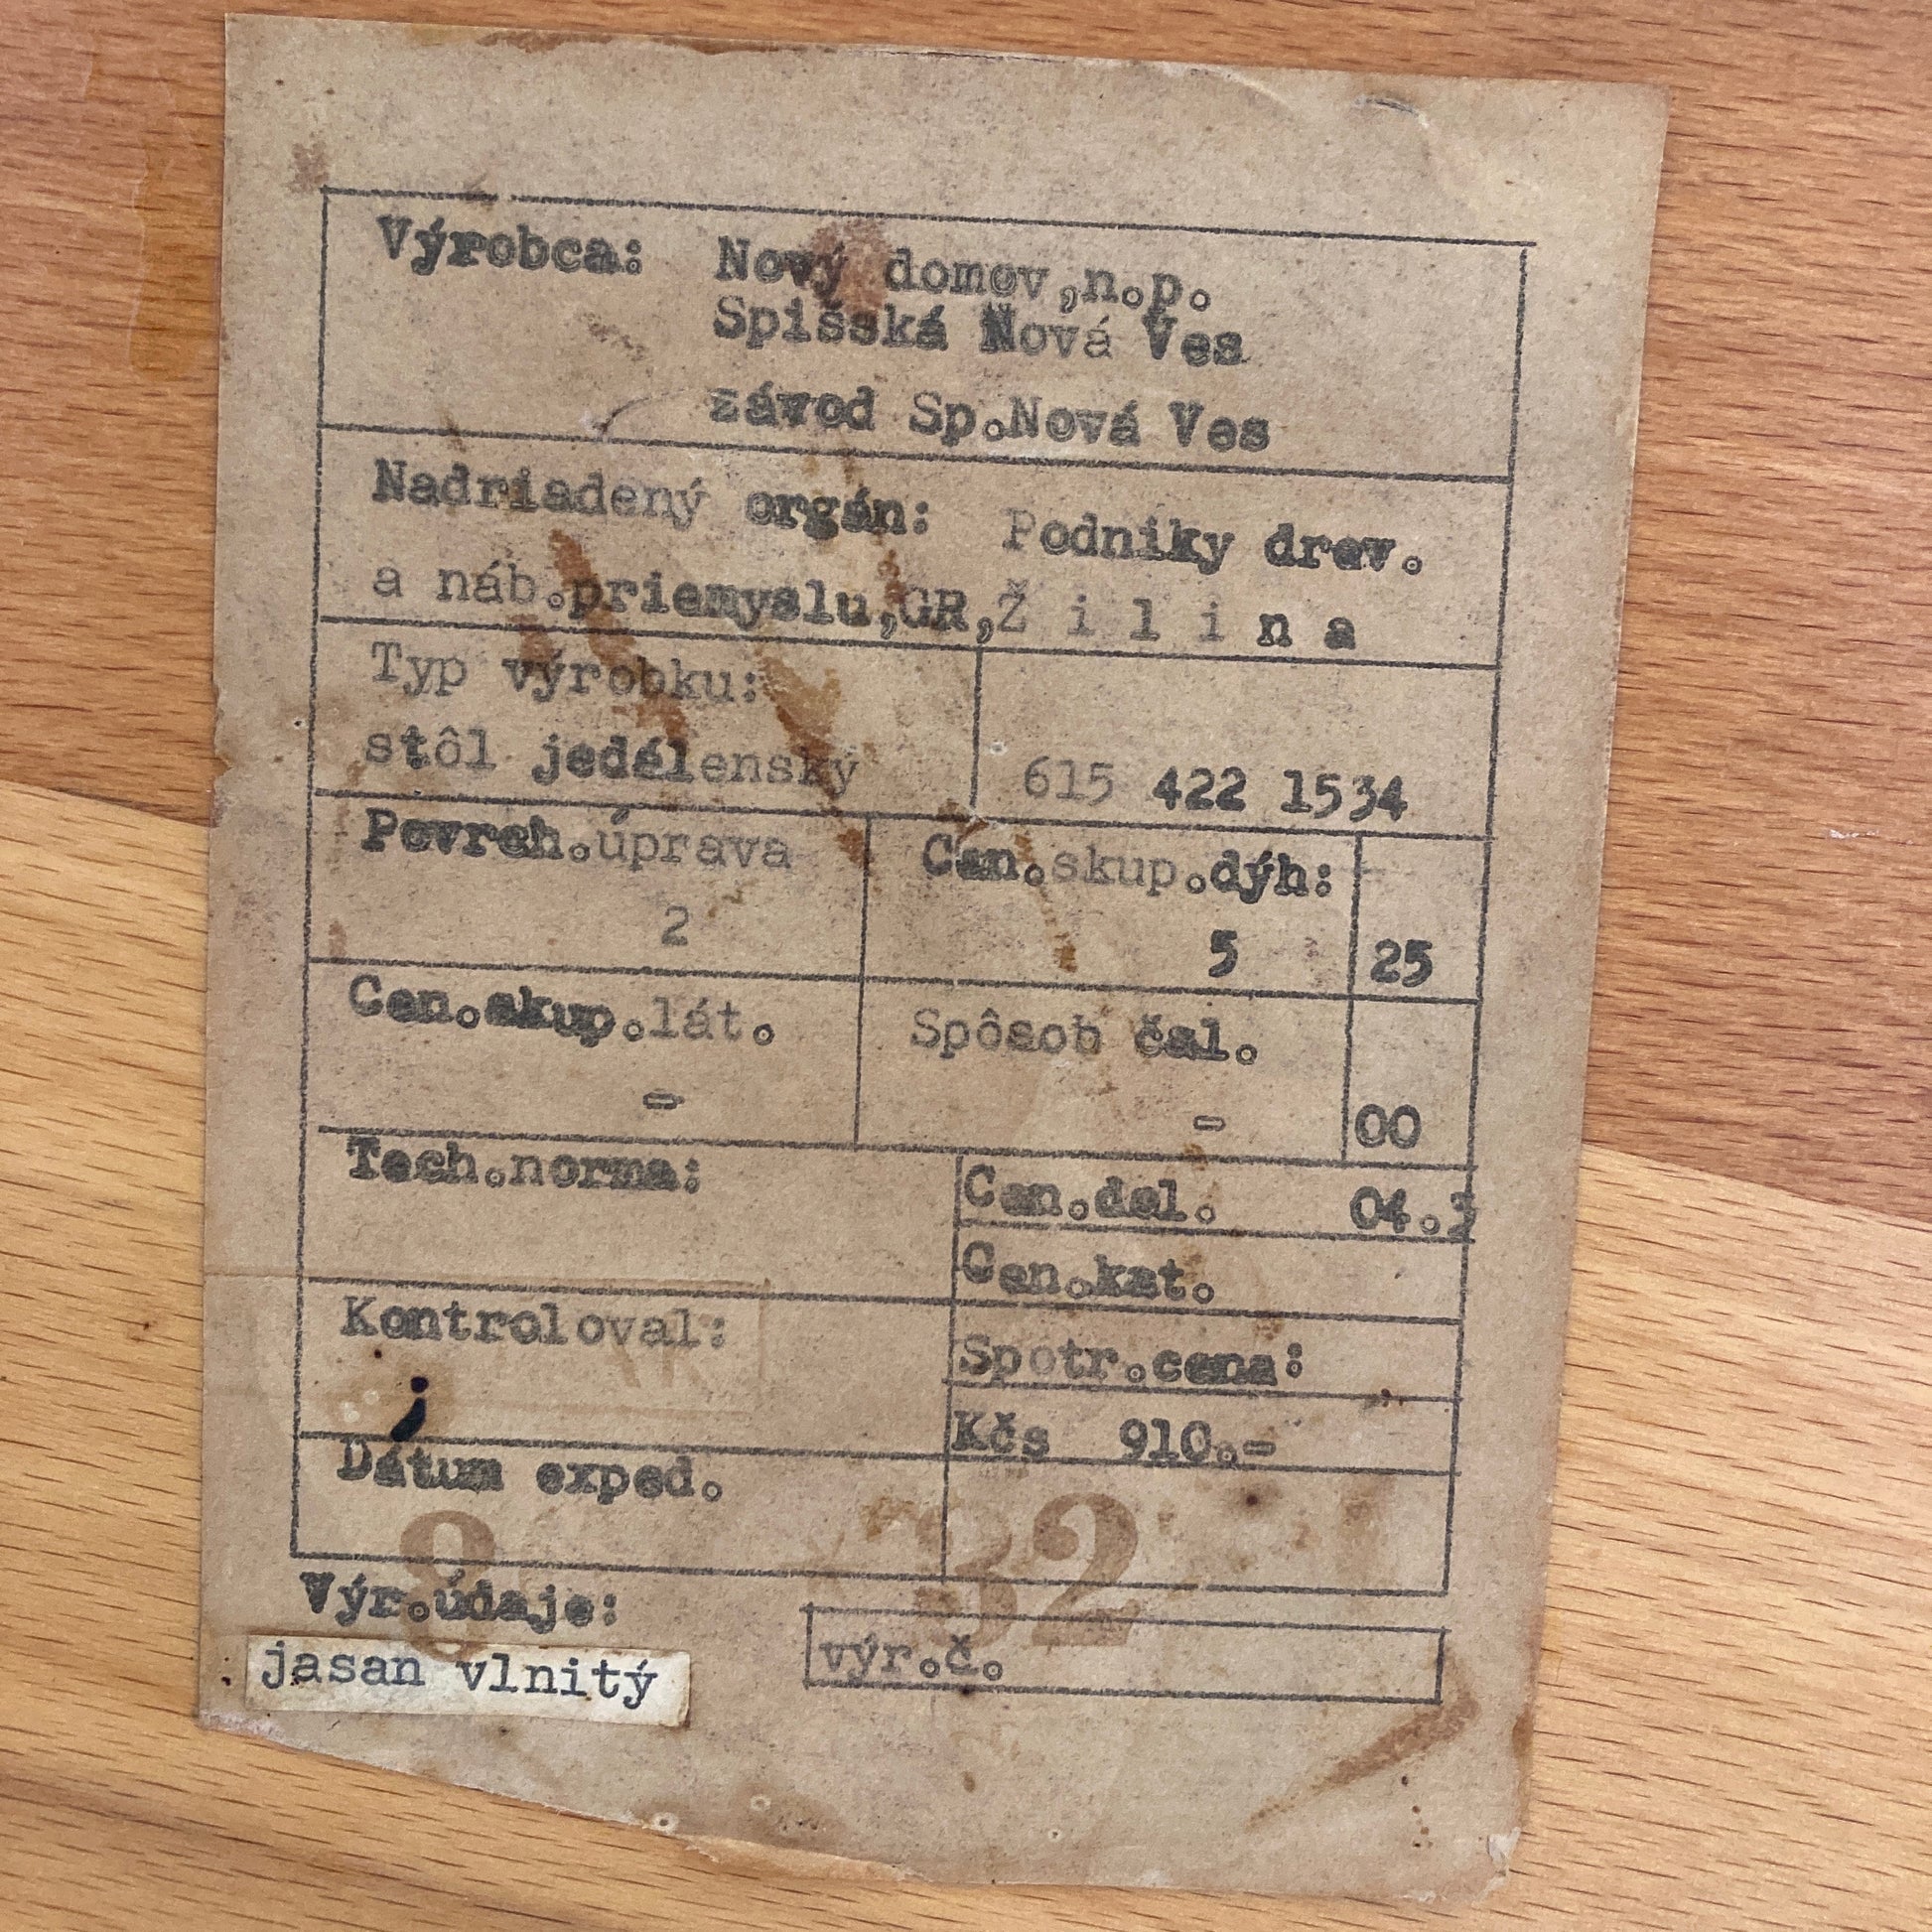 Výrobca: Nový domov,n.p.
Spišská Nová Ves
závod Sp.Nová Ves
Nadriadený orgán: Podniky drev.
a náb.priemyslu,GR,Ž i l i n a
Typ výrobku:
stôl jedálenský 615 422 1534
Povrch.úprava Cen.skup.dýh:
2 5 25
Cen.skup.lát. Spôsob čal.
- - 00
Tech.norma: Cen.del. 04.3
Cen.kat.
Kontroloval: Spotr.cena:
Kčs 910.-
Dátum exped.
8 32
Výr.údaje:
jasan vlnitý výr.č.